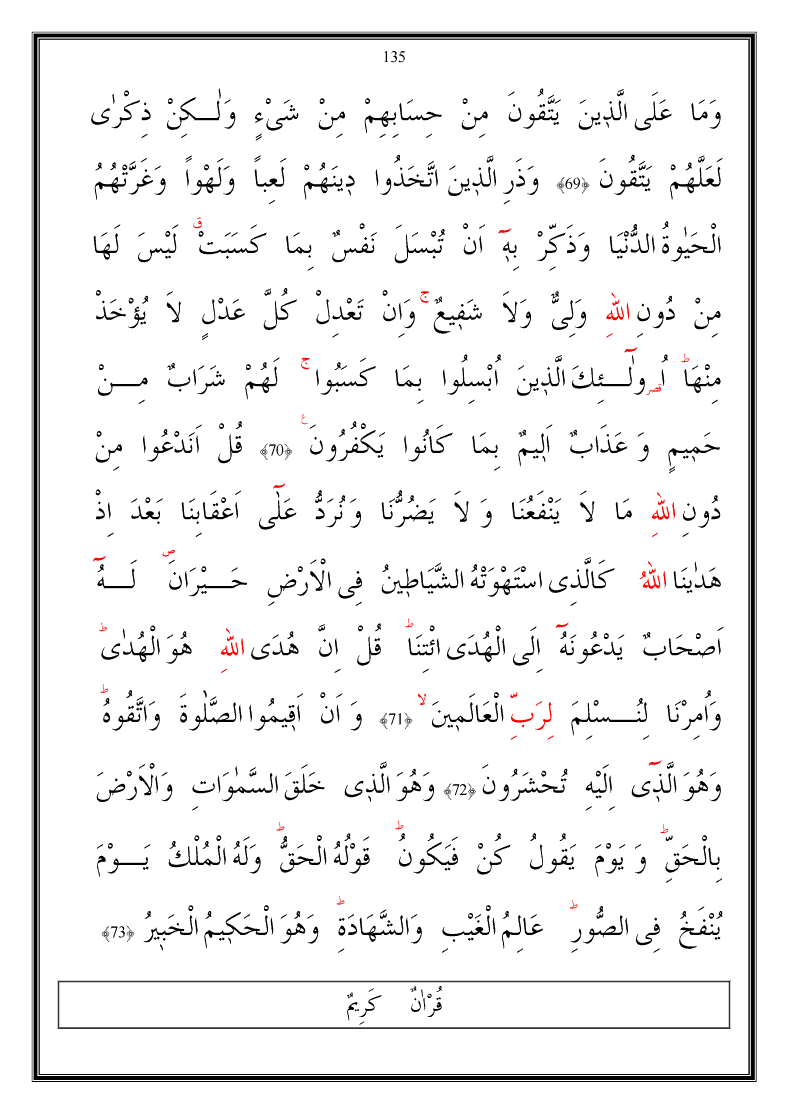 135
وَمَا عَلَى الَّذٖينَ يَتَّقُونَ مِنْ حِسَابِهِمْ مِنْ شَىْءٍ وَلٰـكِنْ ذِكْرٰى
لَعَلَّهُمْ يَتَّقُونَ ﴿69﴾ وَذَرِ الَّذٖينَ اتَّخَذُوا دٖينَهُمْ لَعِباً وَلَهْواً وَغَرَّتْهُمُ
الْحَيٰوةُ الدُّنْيَا وَذَكِّرْ بِهٖٓ اَنْ تُبْسَلَ نَفْسٌ بِمَا كَسَبَتْۗ لَيْسَ لَهَا
مِنْ دُونِ اللهِ وَلِىٌّ وَلاَ شَفٖيعٌۚ وَاِنْ تَعْدِلْ كُلَّ عَدْلٍ لاَ يُؤْخَذْ
مِنْهَاؕ اُو۬لٰٓـئِكَ الَّذٖينَ اُبْسِلُوا بِمَا كَسَبُواۚ لَهُمْ شَرَابٌ مِـنْ
حَمٖيمٍ وَ عَذَابٌ اَلٖيمٌ بِمَا كَانُوا يَكْفُرُونَࣖ ﴿70﴾ قُلْ اَنَدْعُوا مِنْ
دُونِ اللهِ مَا لاَ يَنْفَعُنَا وَ لاَ يَضُرُّنَا وَ نُرَدُّ عَلٰٓى اَعْقَابِنَا بَعْدَ اِذْ
هَدٰينَا اللهُ كَالَّذِى اسْتَهْوَتْهُ الشَّيَاطٖينُ فِى الْاَرْضِ حَـيْرَانَࣕ لَـهُٓ
اَصْحَابٌ يَدْعُونَهُٓ اِلَى الْهُدَى ائْتِنَاؕ قُلْ اِنَّ هُدَى اللهِ هُوَ الْهُدٰىؕ
وَاُمِرْنَا لِنُـسْلِمَ لِرَبِّ الْعَالَمٖينَۙ ﴿71﴾ وَ اَنْ اَقٖيمُوا الصَّلٰوةَ وَاتَّقُوهُؕ
وَهُوَ الَّذٖٓى اِلَيْهِ تُحْشَرُونَ ﴿72﴾ وَهُوَ الَّذٖى خَلَقَ السَّمٰوَاتِ وَالْاَرْضَ
بِالْحَقِّؕ وَ يَوْمَ يَقُولُ كُنْ فَيَكُونُؕ قَوْلُهُ الْحَقُّؕ وَلَهُ الْمُلْكُ يَـوْمَ
يُنْفَخُ فِى الصُّورِؕ عَالِمُ الْغَيْبِ وَالشَّهَادَةِؕ وَهُوَ الْحَكٖيمُ الْخَبٖيرُ ﴿73﴾
قُرْاٰنٌ كَرِيمٌ